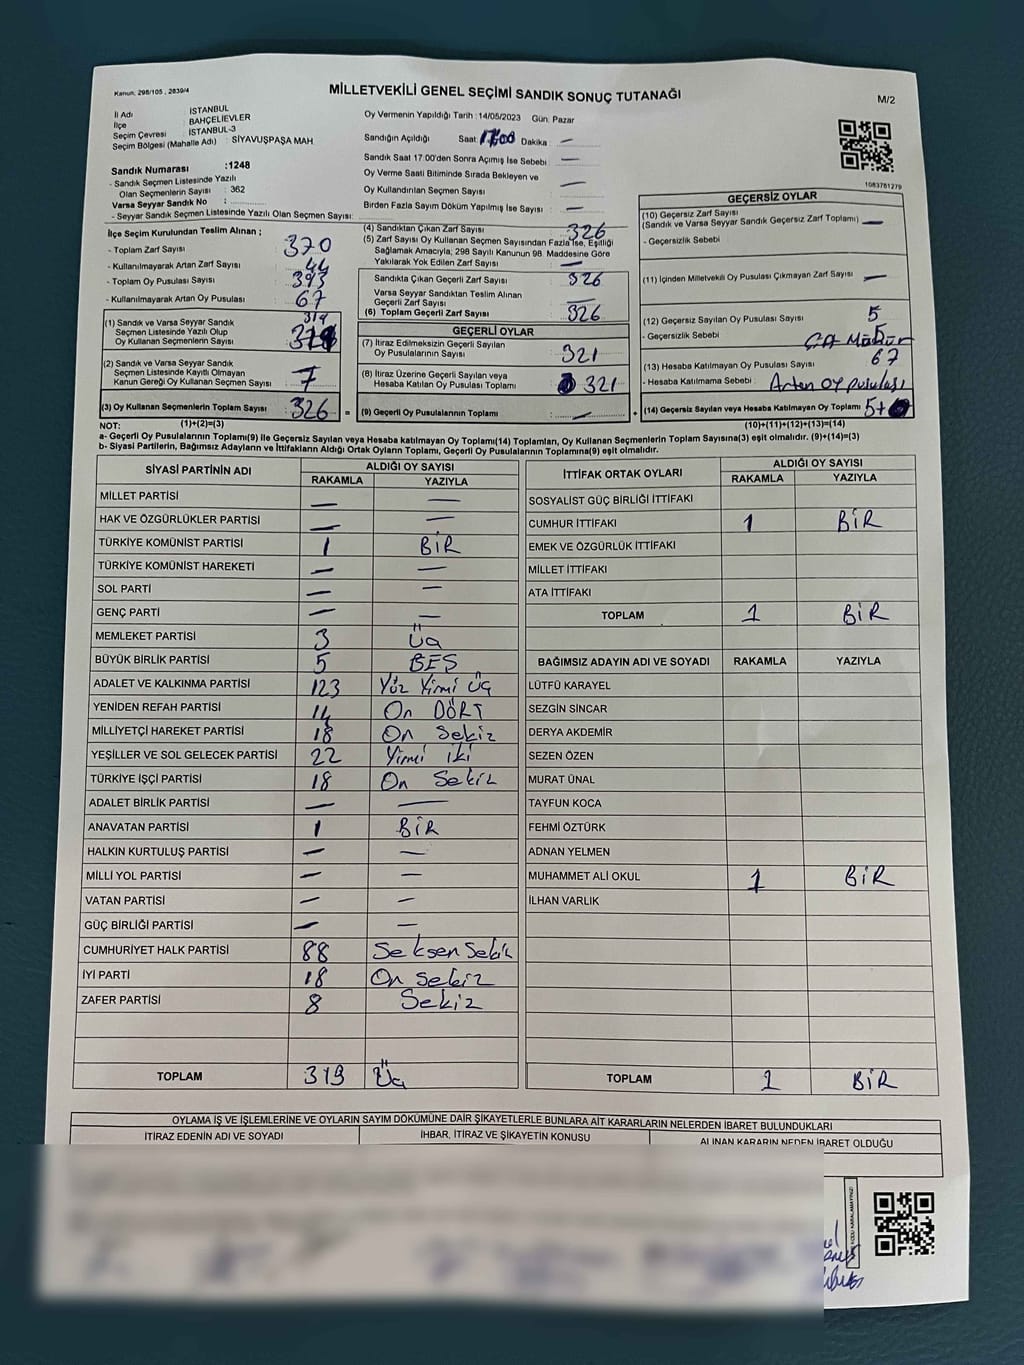 Kanun, 298/105, 2839/4
MİLLETVEKİLİ GENEL SEÇİMİ SANDIK SONUÇ TUTANAĞI
M/2
İl Adı : İSTANBUL
İlçe : BAHÇELİEVLER
Seçim Çevresi : İSTANBUL-3
Seçim Bölgesi (Mahalle Adı) : SİYAVUŞPAŞA MAH
Sandık Numarası :1248
- Sandık Seçmen Listesinde Yazılı
Olan Seçmenlerin Sayısı : 362
Varsa Seyyar Sandık No :
- Seyyar Sandık Seçmen Listesinde Yazılı Olan Seçmen Sayısı:
Oy Vermenin Yapıldığı Tarih : 14/05/2023 Gün: Pazar
Sandığın Açıldığı Saat: 17:00 Dakika : —
Sandık Saat 17.00'den Sonra Açılmış İse Sebebi : —
Oy Verme Saati Bitiminde Sırada Bekleyen ve
Oy Kullandırılan Seçmen Sayısı : —
Birden Fazla Sayım Döküm Yapılmış İse Sayısı : —
1083781279
İlçe Seçim Kurulundan Teslim Alınan ;
- Toplam Zarf Sayısı : 370
- Kullanılmayarak Artan Zarf Sayısı : 44
- Toplam Oy Pusulası Sayısı : 393
- Kullanılmayarak Artan Oy Pusulası : 67
(1) Sandık ve Varsa Seyyar Sandık
Seçmen Listesinde Yazılı Olup
Oy Kullanan Seçmenlerin Sayısı : 319
(2) Sandık ve Varsa Seyyar Sandık
Seçmen Listesinde Kayıtlı Olmayan
Kanun Gereği Oy Kullanan Seçmen Sayısı : 7
(3) Oy Kullanan Seçmenlerin Toplam Sayısı : 326 =
(4) Sandıktan Çıkan Zarf Sayısı : 326
(5) Zarf Sayısı Oy Kullanan Seçmen Sayısından Fazla İse, Eşitliği
Sağlamak Amacıyla; 298 Sayılı Kanunun 98. Maddesine Göre
Yakılarak Yok Edilen Zarf Sayısı : —
Sandıkta Çıkan Geçerli Zarf Sayısı : 326
Varsa Seyyar Sandıktan Teslim Alınan
Geçerli Zarf Sayısı : —
(6) Toplam Geçerli Zarf Sayısı : 326
GEÇERLİ OYLAR
(7) İtiraz Edilmeksizin Geçerli Sayılan
Oy Pusulalarının Sayısı : 321
(8) İtiraz Üzerine Geçerli Sayılan veya
Hesaba Katılan Oy Pusulası Toplamı : 321
(9) Geçerli Oy Pusulalarının Toplamı : — +
GEÇERSİZ OYLAR
(10) Geçersiz Zarf Sayısı
(Sandık ve Varsa Seyyar Sandık Geçersiz Zarf Toplamı) : —
- Geçersizlik Sebebi :
(11) İçinden Milletvekili Oy Pusulası Çıkmayan Zarf Sayısı : —
(12) Geçersiz Sayılan Oy Pusulası Sayısı : 5
- Geçersizlik Sebebi : Mühür
(13) Hesaba Katılmayan Oy Pusulası Sayısı : 67
- Hesaba Katılmama Sebebi : Artan oy pusulası
(14) Geçersiz Sayılan veya Hesaba Katılmayan Oy Toplamı : 5+
NOT: (1)+(2)=(3) (10)+(11)+(12)+(13)=(14)
a- Geçerli Oy Pusulalarının Toplamı(9) ile Geçersiz Sayılan veya Hesaba katılmayan Oy Toplamı(14) Toplamları, Oy Kullanan Seçmenlerin Toplam Sayısına(3) eşit olmalıdır. (9)+(14)=(3)
b- Siyasi Partilerin, Bağımsız Adayların ve İttifakların Aldığı Ortak Oyların Toplamı, Geçerli Oy Pusulalarının Toplamına(9) eşit olmalıdır.
SİYASİ PARTİNİN ADI ALDIĞI OY SAYISI
RAKAMLA YAZIYLA
MİLLET PARTİSİ — —
HAK VE ÖZGÜRLÜKLER PARTİSİ — —
TÜRKİYE KOMÜNİST PARTİSİ 1 BİR
TÜRKİYE KOMÜNİST HAREKETİ — —
SOL PARTİ — —
GENÇ PARTİ — —
MEMLEKET PARTİSİ 3 Üç
BÜYÜK BİRLİK PARTİSİ 5 BEŞ
ADALET VE KALKINMA PARTİSİ 123 Yüz Yirmi Üç
YENİDEN REFAH PARTİSİ 14 On DÖRT
MİLLİYETÇİ HAREKET PARTİSİ 18 On Sekiz
YEŞİLLER VE SOL GELECEK PARTİSİ 22 Yirmi iki
TÜRKİYE İŞÇİ PARTİSİ 18 On Sekiz
ADALET BİRLİK PARTİSİ — —
ANAVATAN PARTİSİ 1 BİR
HALKIN KURTULUŞ PARTİSİ — —
MİLLİ YOL PARTİSİ — —
VATAN PARTİSİ — —
GÜÇ BİRLİĞİ PARTİSİ — —
CUMHURİYET HALK PARTİSİ 88 Seksen Sekiz
İYİ PARTİ 18 On Sekiz
ZAFER PARTİSİ 8 Sekiz
TOPLAM 319 Üç
İTTİFAK ORTAK OYLARI ALDIĞI OY SAYISI
RAKAMLA YAZIYLA
SOSYALİST GÜÇ BİRLİĞİ İTTİFAKI
CUMHUR İTTİFAKI 1 BİR
EMEK VE ÖZGÜRLÜK İTTİFAKI
MİLLET İTTİFAKI
ATA İTTİFAKI
TOPLAM 1 BİR
BAĞIMSIZ ADAYIN ADI VE SOYADI RAKAMLA YAZIYLA
LÜTFÜ KARAYEL
SEZGİN SİNCAR
DERYA AKDEMİR
SEZEN ÖZEN
MURAT ÜNAL
TAYFUN KOCA
FEHMİ ÖZTÜRK
ADNAN YELMEN
MUHAMMET ALİ OKUL 1 BİR
İLHAN VARLIK
TOPLAM 1 BİR
OYLAMA İŞ VE İŞLEMLERİNE VE OYLARIN SAYIM DÖKÜMÜNE DAİR ŞİKAYETLERLE BUNLARA AİT KARARLARIN NELERDEN İBARET BULUNDUKLARI
İTİRAZ EDENİN ADI VE SOYADI İHBAR, İTİRAZ VE ŞİKAYETİN KONUSU ALINAN KARARIN NEDEN İBARET OLDUĞU